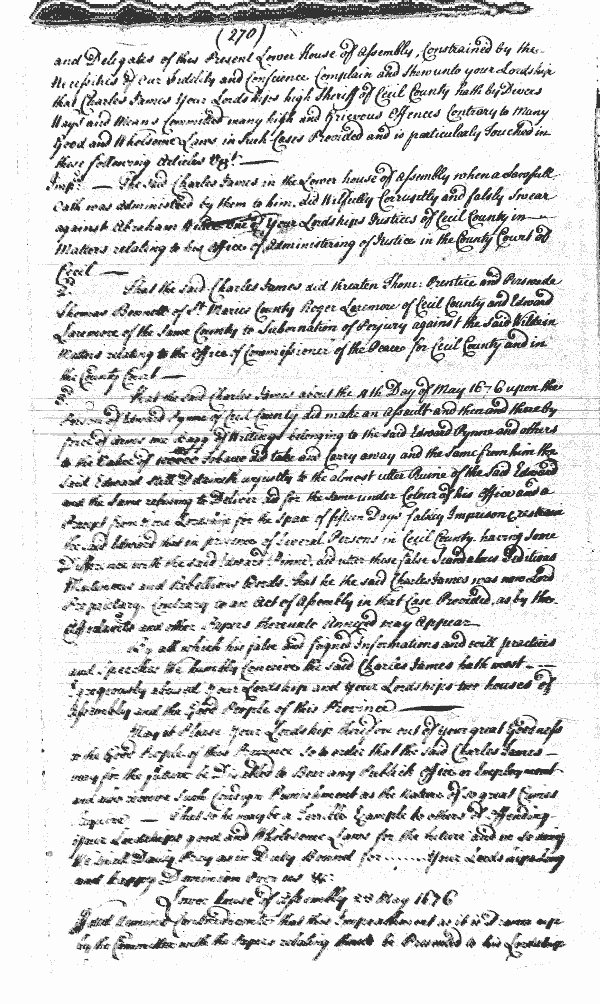 (270)
and Delegates of this Present Lower House of Assembly, Constrained by the
Necessities of our Fidelity and Conscience Complain and Shew unto your Lordship
that Charles James Your Lordships high Sheriff of Cecil County hath by Divers
Ways and Means Committed many high and Grievous Offences Contrary to Many
Good and Wholsome Laws in Such Cases Provided and is particularly Touched in
these following Articles Viz.t
Imp.s — The Said Charles James in the Lower house of Assembly when a Lawfull
Oath was administered by them to him, did Wilfully Corruptly and falsly Swear
against Abraham one of Your Lordships Justices of Cecil County in
Matters relating to his Office of Administering of Justice in the County Court of
Cecil —
2.d That the said Charles James did threaten Thom: Prentice and Perswade
Thomas Bennett of St Maries County Roger Laremore of Cecil County and Edward
Laremore of the Same County to Subornation of Perjury against the Said
Matters relating to the Office of Commissioner of the Peace for Cecil County and in
the County Court —
3.d That the Said Charles James about the 4th Day of May 1676 upon the
Person of Edward Pynne of Cecil County did make an Assault and then and there by
force of Armes belonging to the said Edward Pynne and others
to the Value of Tobacco did take and Carry away and the Same from him the
Said Edward Still Detaineth unjustly to the almost utter Ruine of the Said Edward
and the Same refusing to Deliver did for the Same under Colour of his Office and a
Precept from your Lordship for the Space of fifteen Days falsly Imprison
the said Edward that in presence of Several Persons in Cecil County having Some
Difference with the said Edward Pynne, did utter these false Scandalous Seditious
Mutinous and Rebellious Words. that he the said Charles James was now Lord
Proprietary. Contrary to an Act of Assembly in that Case Provided, as by the
Affidavits and other Papers hereunto Annexed may Appear
By all which his false and feigned Informations and evill practices
and Speeches We humbly Conceive the said Charles James hath most
Egregiously abused Your Lordship and Your Lordships two houses of
Assembly and the Good People of this Province
May it Please Your Lordship therefore out of your great Goodness
to the Good People of this Province So to order that the Said Charles James
may for the future be Disabled to Bear any Publick Office or Employment
and also receive Such Condign Punishment as the Nature of so great Crimes
Require — That so he may be a Terrible Example to others of offending
your Lordships good and Wholesome Laws for the future and we so
We Shall Daily Pray as in Duty Bound for ...... Your Lords
and happy Dominion over us &c.
Lower house of Assembly 23 May 1676
that this Impeachment as it is Drawn up
by the Committee with the Papers relating thereto be Presented to his Lordship